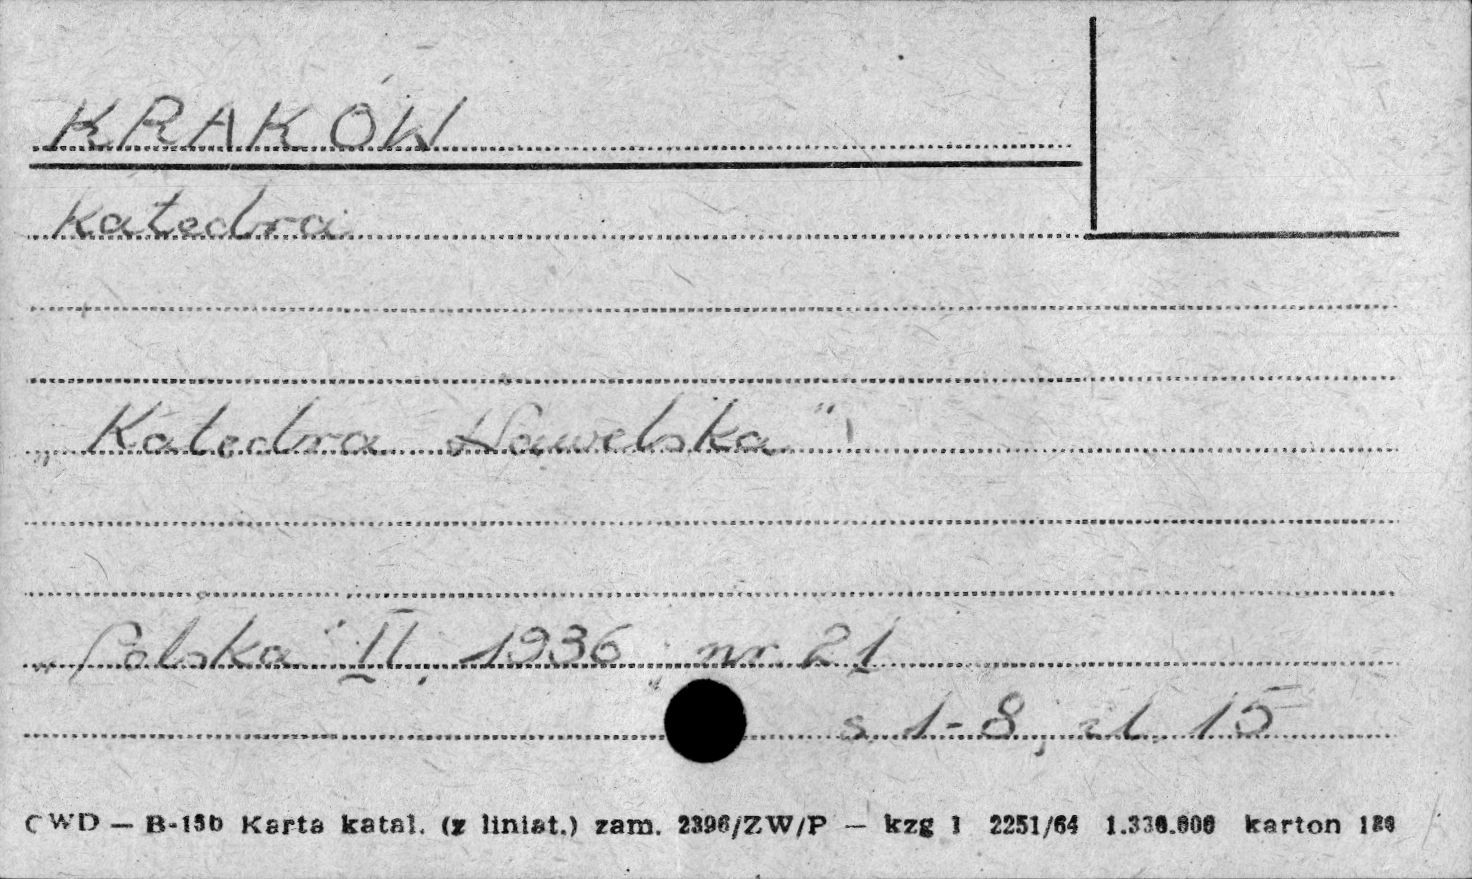 KRAKÓW
Katedra
„Katedra Wawelska"
„Polska" II, 1936, nr. 21
s. 1-8, il. 15
CWD — B-15b Karta katal. (z liniat.) zam. 2396/ZW/P — kzg 1 2251/64 karton